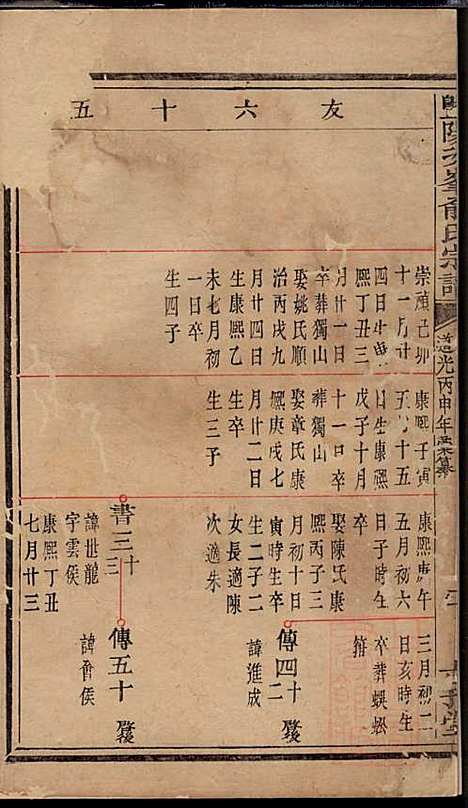 暨陽次峯俞氏宗譜
道光丙申年重纂
友六十五
崇禎己卯
十一月廿
四日生康
熙丁丑三
月廿一日
卒葬獨山
娶姚氏順
治丙戌九
月廿四日
生康熙乙
未七月初
一日卒
生四子
康熙壬寅
五月十五
日生康熙
戊子十月
十一日卒
葬獨山
娶章氏康
熙庚戌七
月廿二日
生卒
生三子
康熙庚午
五月初六
日子時生
卒
娶陳氏康
熙丙子三
月初十日
寅時生卒
生二子二
女長適陳
次適朱
書三十三
諱世龍
字雲侯
康熙丁丑
七月廿三
三月初二
日亥時生
卒葬蜈蚣
傳四十二
諱進成
傳五十
諱會侯